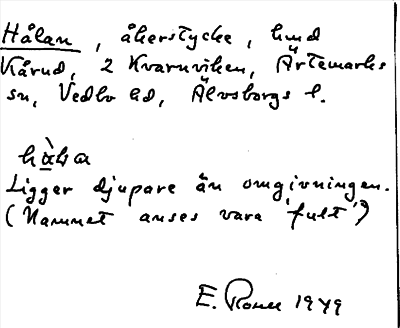 Hålan, åkerstycke, hmd
Kårud, 2 Kvarnviken, Ärtemarks
sn, Vedbo hd, Älvsborgs l.
Ligger djupare än omgivningen.
(Namnet anses vara 'fult')
E. 1949